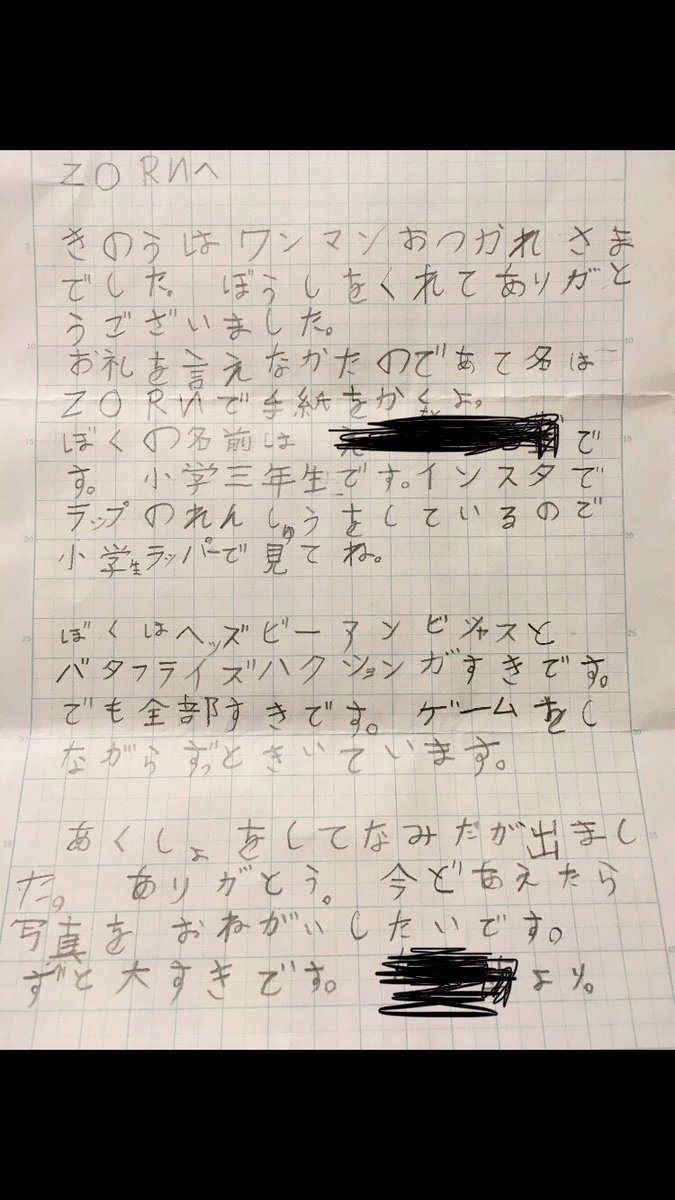 ZORNへ
きのうはワンマンおつかれさま
でした。ぼうしをくれてありがと
うございました。
お礼を言えなかたのであて名は
ZORNで手紙をかくよ。
ぼくの名前は で
す。小学三年生です。インスタで
ラップのれんしゅうをしているので
小学生ラッパーで見てね。
ぼくはヘッズビーアンビシャスと
バタフライズハクションがすきです。
でも全部すきです。ゲームをし
ながらずっときいています。
あくしょをしてなみだが出まし
た。ありがとう。今どあえたら
写真をおねがいしたいです。
ずと大すきです。 より。